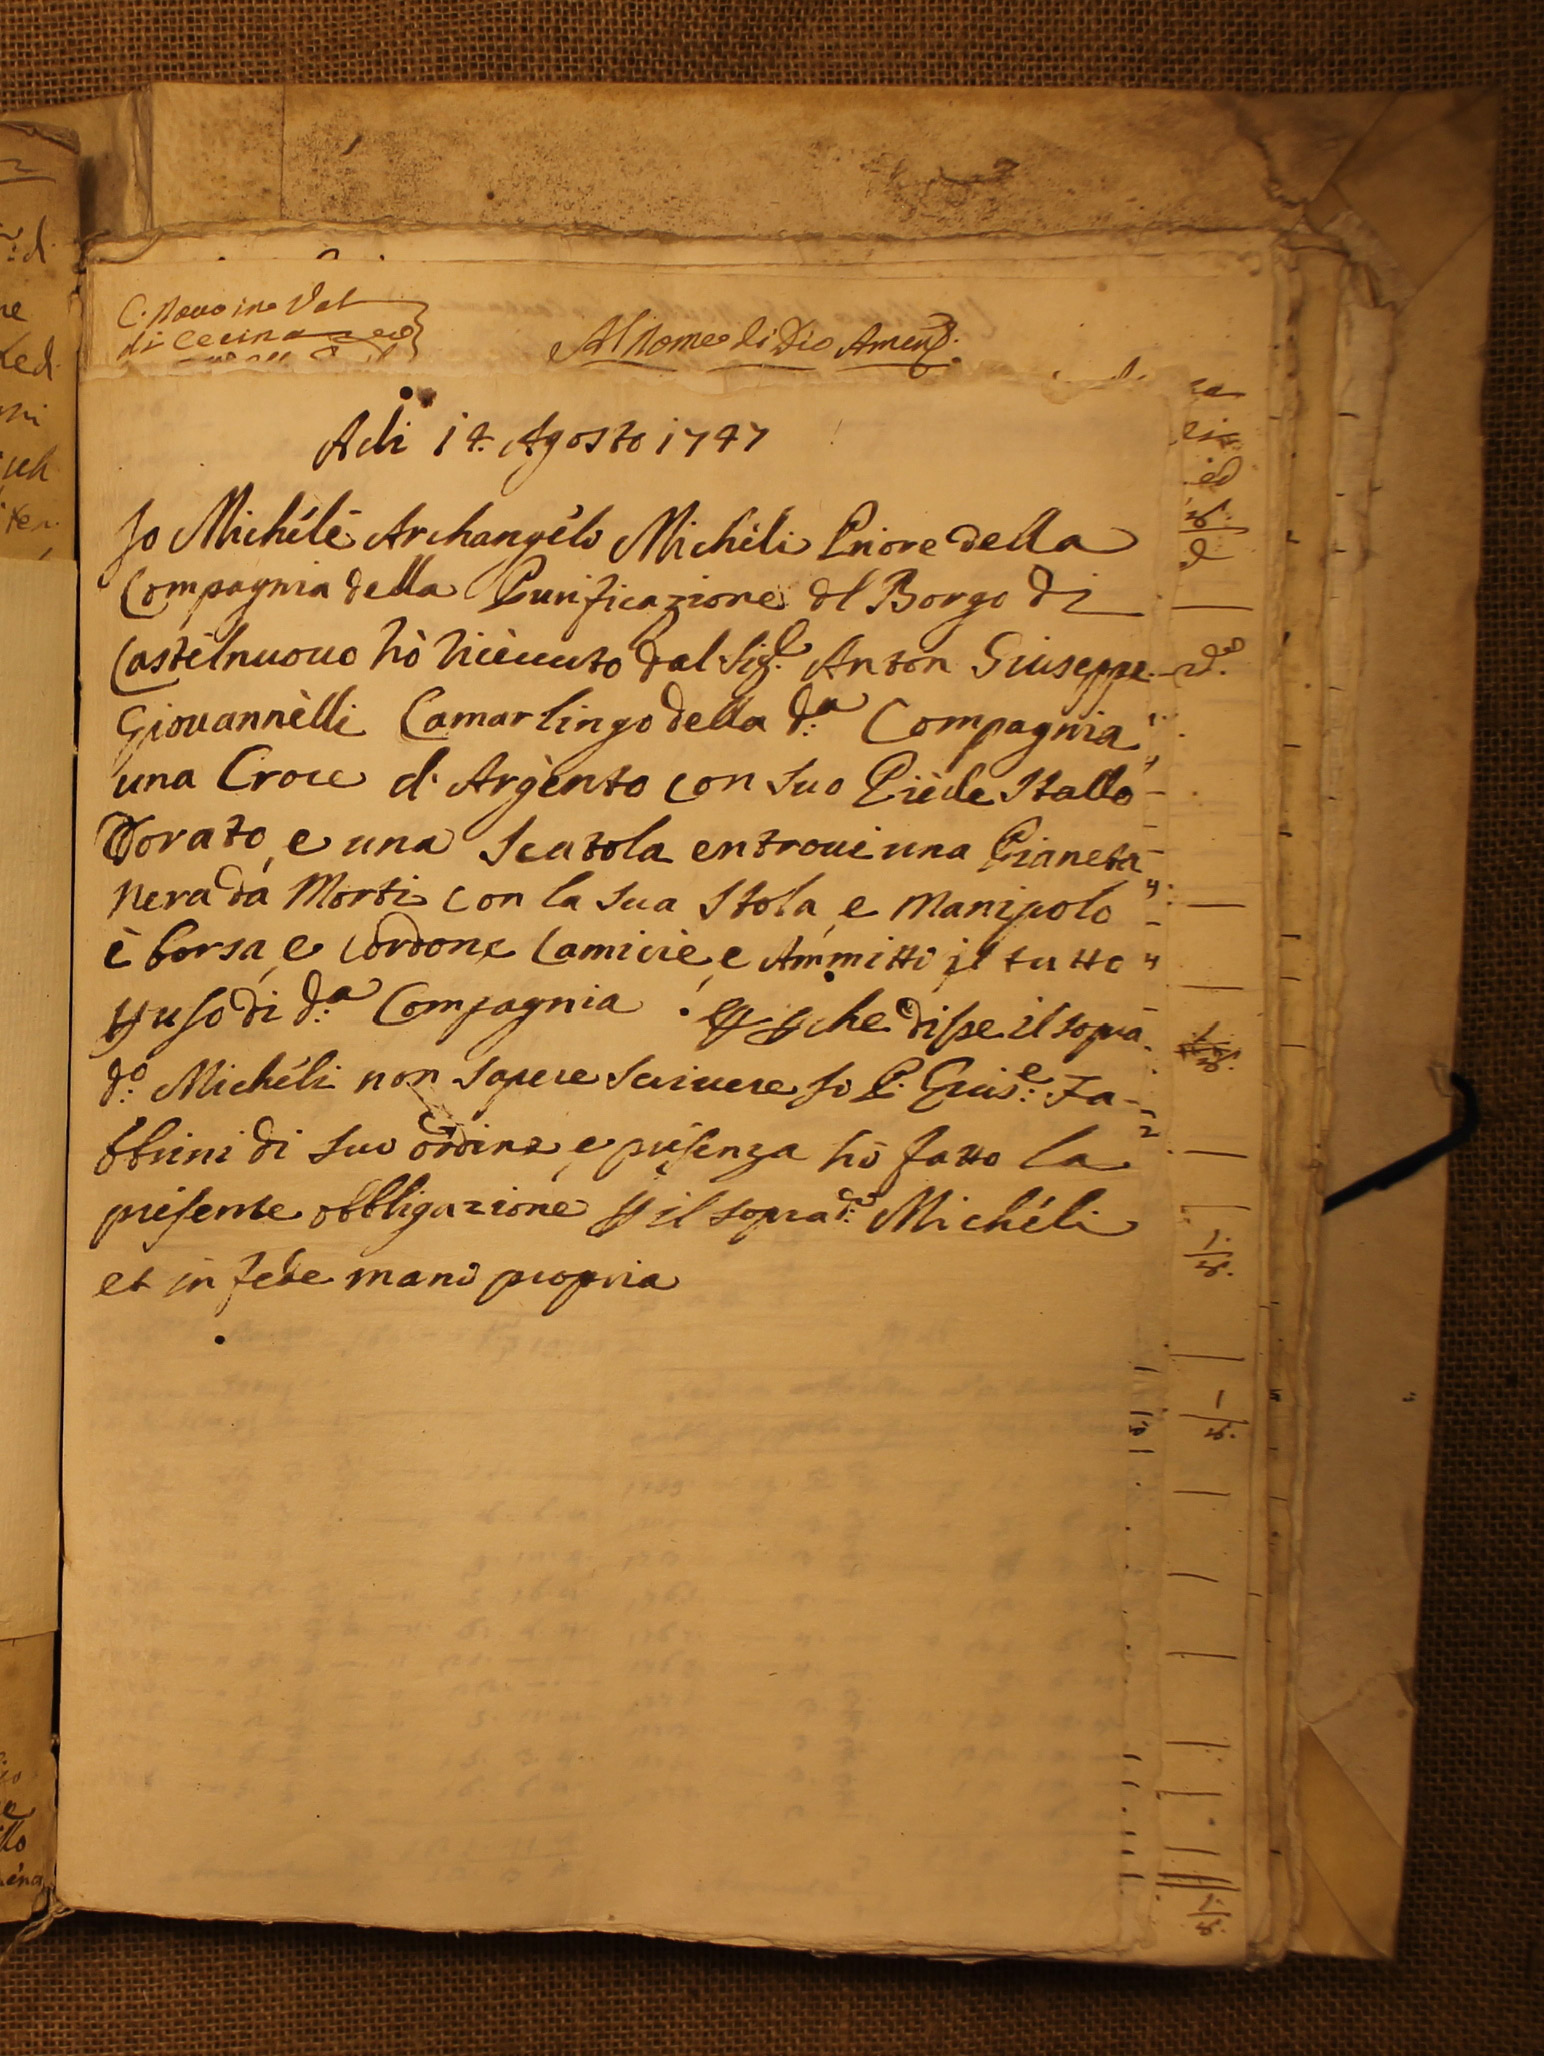 C. Nouo in Val
di Cecina
Al Nome di Dio Amen.
Adi 14. Agosto 1747
Io Michéle Archangélo Michéli Priore della
Compagnia della Purificazione del Borgo di
Castélnuouo hò riceuuto dal Sig.r Anton Giuseppe
Giouannèlli Camarlingo della d.a Compagnia
una Croce d'Argènto con suo Pièdestallo
Dorato, e una Scatola entroui una Pianeta
Nera da Morti con la sua Stola, e Manipolo
è borsa, e Cordone Camicie, e Ammitti il tutto
p uso di d.a Compagnia. E p che disse il sopra
d.o Michéli non sapere scriuere Io P. Gius.e Fa-
bbrini di suo ordine, e presenza hò fatto la
presente obbligazione p il soprad.o Michéli
et in fede mano propria